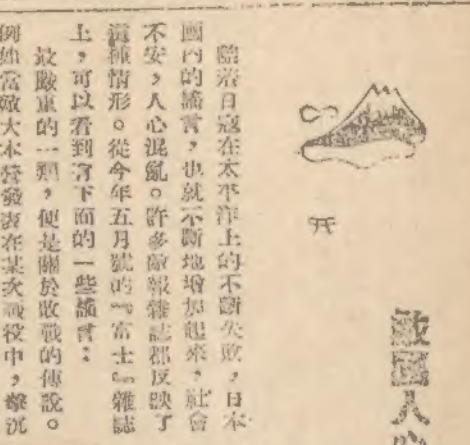 敵國人
隨着日寇在太平洋上的不斷失敗，日本
國內的謠言，也就不斷地增加起來，社會
不安，人心混亂。許多敵報雜誌都反映了
這種情形。從今年五月號的『富士』雜誌
上，可以看到有下面的一些謠言：
最嚴重的一類，便是關於敗戰的傳說。
例如當敵大本營發表在某次戰役中，擊沉